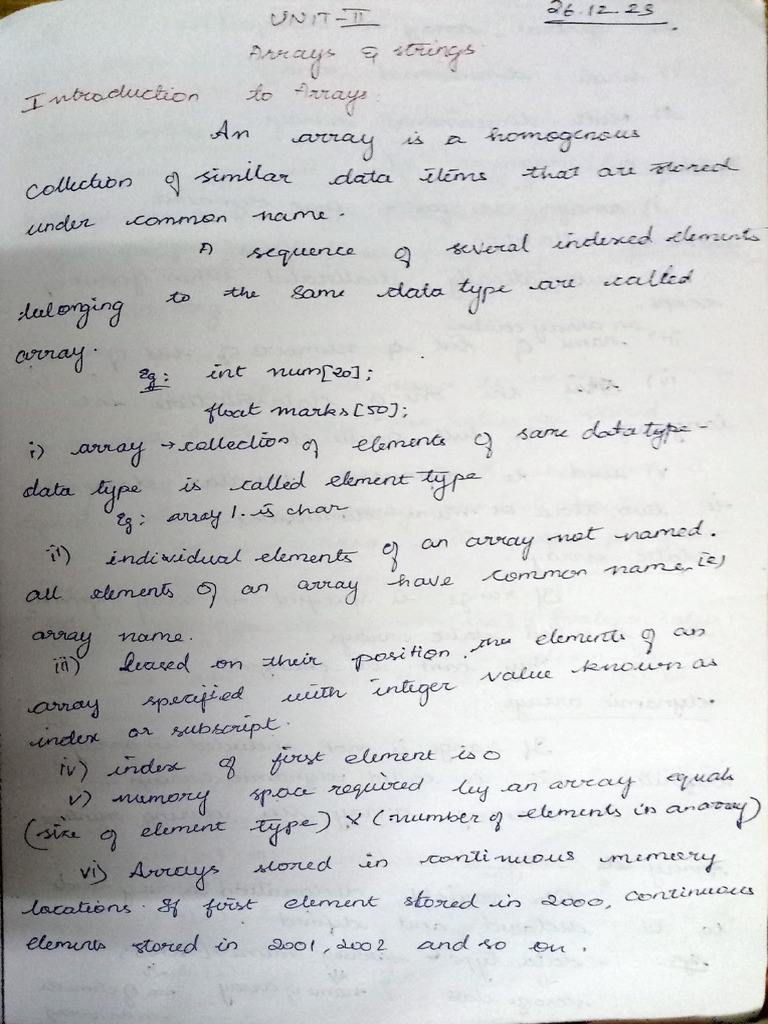 UNIT-II
26.12.23
Arrays & strings
Introduction to Arrays.
An array is a homogenous
collection of similar data items that are stored
under common name.
A sequence of several indexed elements
belonging to the same data type are called
array.
Eg: int num[20];
float marks[50];
i) array → collection of elements of same data type-
data type is called element type
Eg: array 1. is char
ii) individual elements of an array not named.
all elements of an array have common name, (ie)
array name.
iii) based on their position, the elements of an
array specified with integer value known as
index or subscript.
iv) index of first element is 0
v) memory space required by an array equals
(size of element type) x (number of elements in an array)
vi) Arrays stored in continuous memory
locations. If first element stored in 2000, continuous
elements stored in 2001, 2002 and so on.